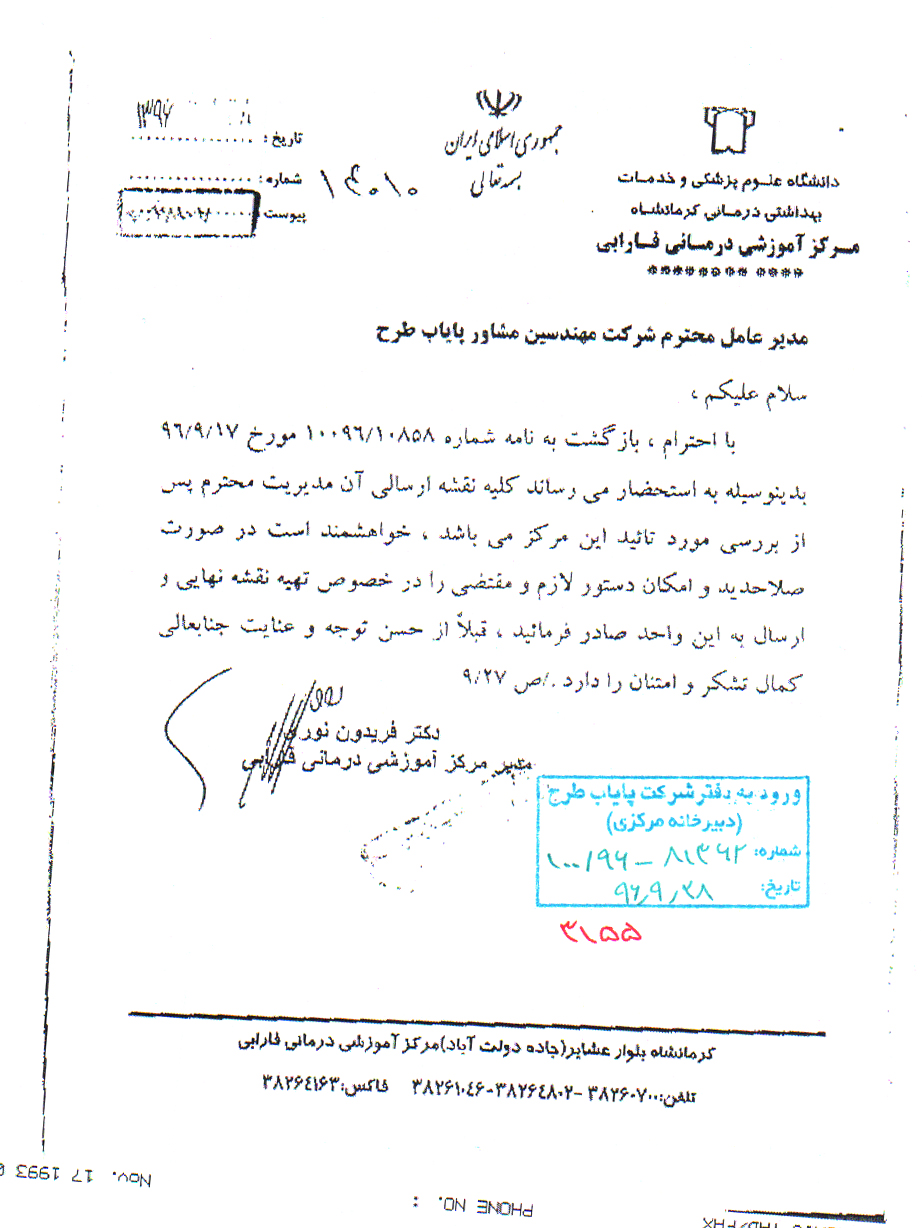 جمهوری اسلامی ایران
بسمه تعالی
دانشگاه علوم پزشکی و خدمات
بهداشتی درمانی کرمانشاه
مرکز آموزشی درمانی فارابی
************
۱۳۹۶
تاریخ :
شماره : ۱۴۰۱۰
پیوست
مدیر عامل محترم شرکت مهندسین مشاور پایاب طرح
سلام علیکم ،
با احترام ، بازگشت به نامه شماره ۱۰۰۹۶/۱۰۸۵۸ مورخ ۹۶/۹/۱۷
بدینوسیله به استحضار می رساند کلیه نقشه ارسالی آن مدیریت محترم پس
از بررسی مورد تائید این مرکز می باشد ، خواهشمند است در صورت
صلاحدید و امکان دستور لازم و مقتضی را در خصوص تهیه نقشه نهایی و
ارسال به این واحد صادر فرمائید ، قبلاً از حسن توجه و عنایت جنابعالی
کمال تشکر و امتنان را دارد ./ص ۹/۲۷
دکتر فریدون نوری
مدیر مرکز آموزشی درمانی فارابی
ورود به دفتر شرکت پایاب طرح
(دبیرخانه مرکزی)
شماره: ۱۰۰/۹۶ – ۸۱۳۶۲
تاریخ: ۹۶/۹/۲۸
۳۱۵۵
کرمانشاه بلوار عشایر(جاده دولت آباد)مرکز آموزشی درمانی فارابی
تلفن:۳۸۲۶۰۷۰۰ -۳۸۲۶۴۸۰۲-۳۸۲۶۱۰۴۶ فاکس:۳۸۲۶۴۱۶۳
Nov. 17 1993
PHONE NO. :